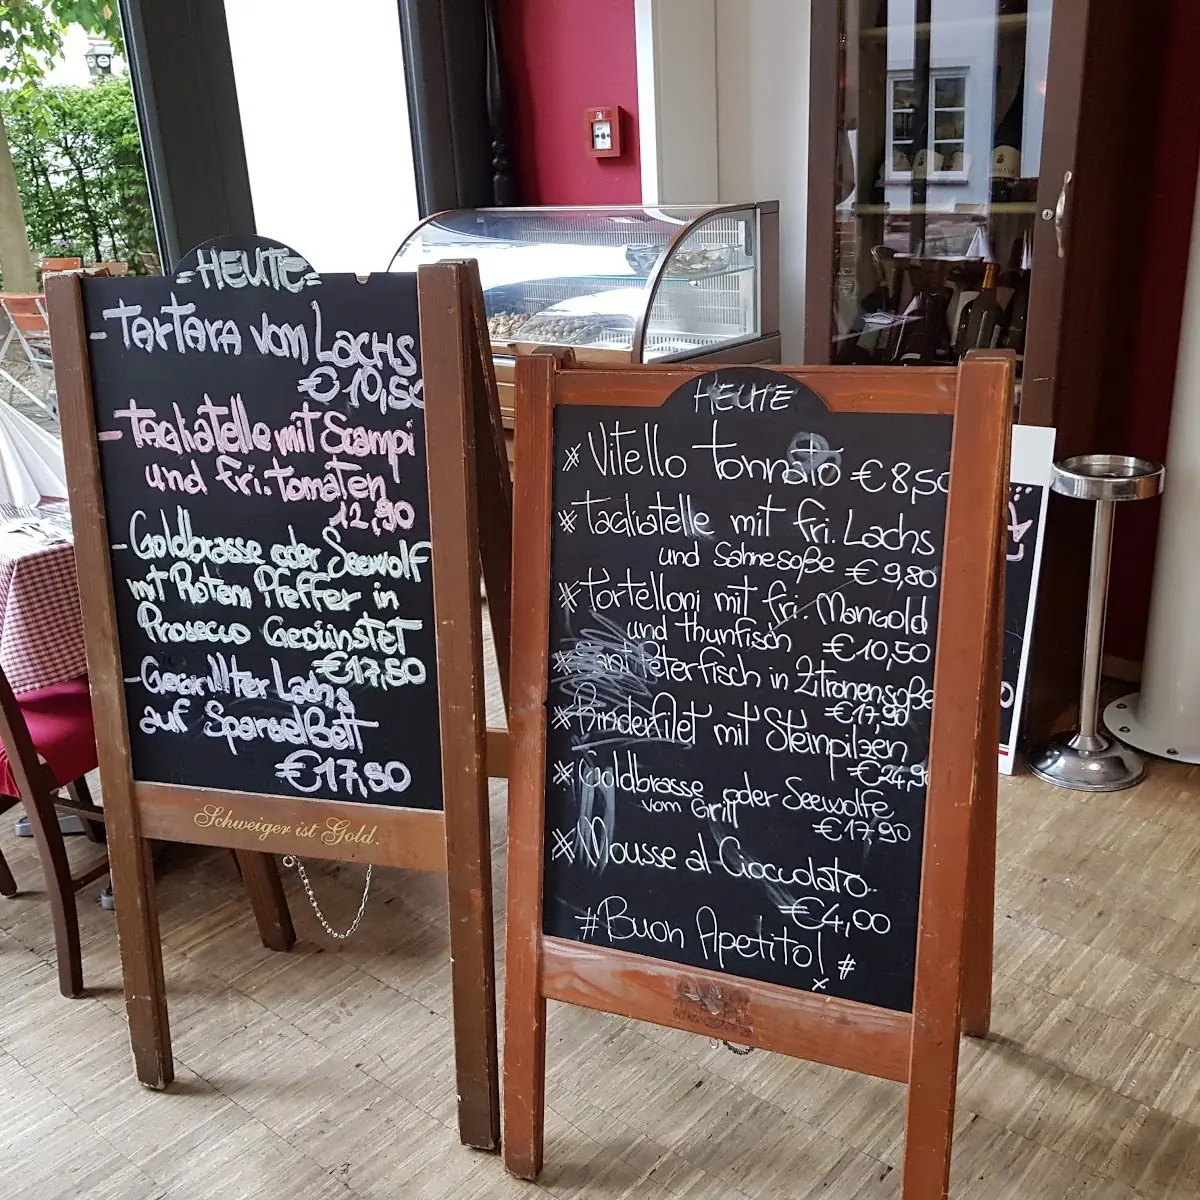 =HEUTE=
-Tartara vom Lachs
€10,50
-Tagliatelle mit Scampi
und fri. Tomaten
12,90
-Goldbrasse oder Seewolf
mit Rotem Pfeffer in
Prosecco Gedünstet
€17,50
-Gegrillter Lachs
auf SpargelBett
€17,50
Schweiger ist Gold.
HEUTE
* Vitello tonnato €8,50
* Tagliatelle mit fri. Lachs
und Sahnesoße €9,80
* Tortelloni mit fri. Mangold
und Thunfisch €10,50
* Sant Peterfisch in Zitronensoße
€17,90
* Rinderfilet mit Steinpilzen
€24,90
* Goldbrasse oder Seewolfe
vom Grill €17,90
* Mousse al Cioccolato..
€4,00
#Buon Apetito! #
x